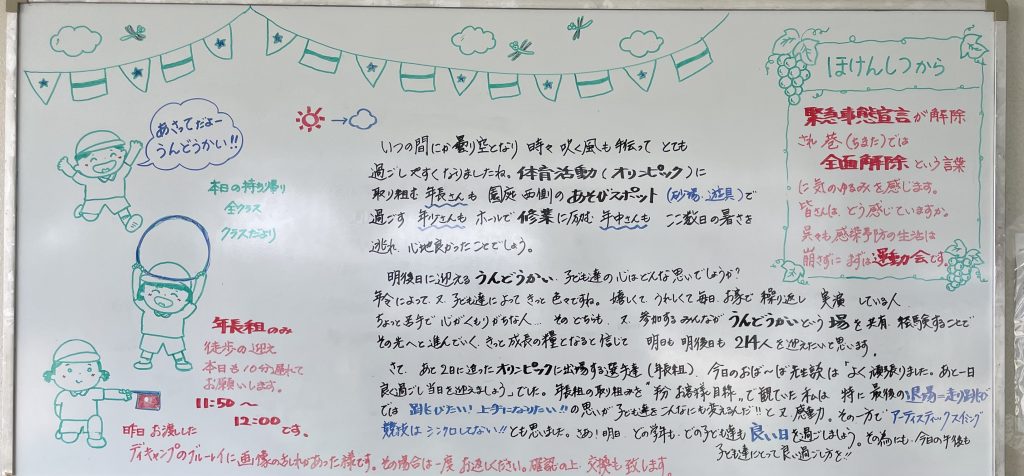 あさってだよー
うんどうかい!!
本日の持ち帰り
全クラス
クラスだより
年長組のみ
徒歩の迎え
本日も10分遅れて
お願いします。
11:50〜
12:00です。
昨日お渡しした
デイキャンプのブルーレイに画像のみだれがあった様です。その場合は一度お返しください。確認の上、交換も致します。
いつの間にか曇り空となり 時々吹く風も手伝って とても
過ごしやすくなりましたね。体育活動(オリンピック)に
取り組む 年長さんも 園庭西側のあそびスポット(砂場、遊具)で
過ごす 年少さんも ホールで修業に励む 年中さんも ここ数日の暑さを
逃れ、心地良かったことでしょう。
明後日に迎えるうんどうかい、子ども達の心はどんな思いでしょうか?
年令によって、又、子ども達によって きっと色々ですね。嬉しくて うれしくて毎日、お家で繰り返し 実演 している人、
ちょっと苦手で 心がくもりがちな人... そのどちらも、又、参加するみんなが うんどうかいという場を共有、経験することで
その先へと進んでいく、きっと成長の糧となると信じて 明日も 明後日も 214人を迎えたいと思います。
さて、あと2日に迫ったオリンピックに出場する選手達(年長組)、今日のおぼ〜ぼ先生談は「よく頑張りました。あと一日
良い過ごし 当日を迎えましょう」でした。年長組の取り組みを"粉 お客様目線"で観ていた私は 特に最後の退場=走り跳び
では 跳びたい!上手になりたい!!の思いが子ども達をこんなにも変えるんだ!!と又、感動。その一方でアーティスティックスイミング
競技はシンクロしてない!!とも思いました。さあ!明日、どの学年も、どの子ども達も良い日を過ごしましょう。その為にも、今日の午後も
子ども達にとって良い過ごし方を!!
ほけんしつから
緊急事態宣言が解除
され 巷(ちまた)では
全面解除という言葉
に気のゆるみを感じます。
皆さんは、どう感じていますか。
呉々も感染予防の生活は
崩さずに まずは運動会です。